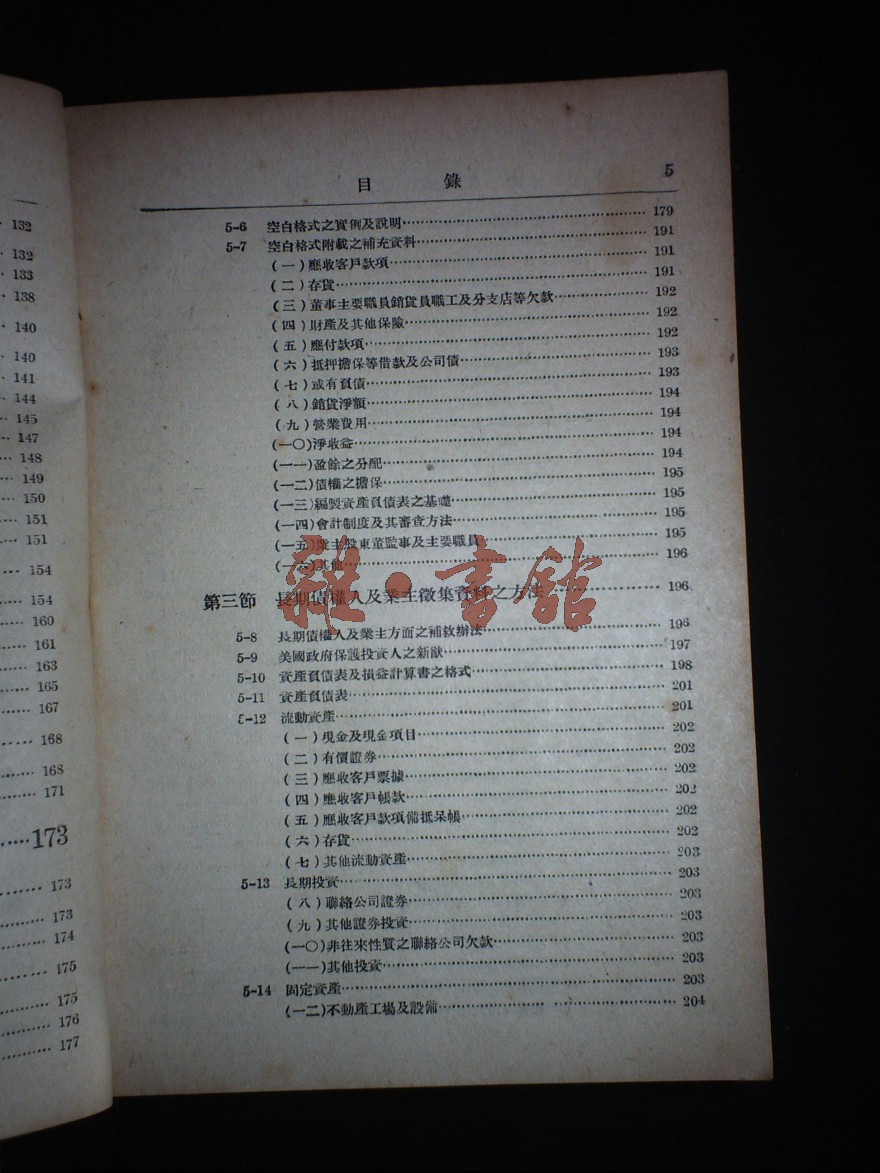 132
132
133
138
140
140
141
144
145
147
148
149
150
151
151
154
154
160
161
163
165
167
168
168
171
173
173
173
174
175
175
176
177
目 錄 5
5-6 空白格式之實例及說明 179
5-7 空白格式附載之補充資料 191
(一)應收客戶款項 191
(二)存貨 191
(三)董事主要職員銷貨員職工及分支店等欠款 192
(四)財產及其他保險 192
(五)應付款項 192
(六)抵押擔保等借款及公司債 193
(七)或有負債 193
(八)銷貨淨額 194
(九)營業費用 194
(一〇)淨收益 194
(一一)盈餘之分配 194
(一二)債權之擔保 195
(一三)編製資產負債表之基礎 195
(一四)會計制度及其審查方法 195
(一五)業主股東董監事及主要職員 195
(一六)其他 196
第三節 長期債權人及業主徵集資料之方法 196
5-8 長期債權人及業主方面之補救辦法 196
5-9 美國政府保護投資人之新猷 197
5-10 資產負債表及損益計算書之格式 198
5-11 資產負債表 201
5-12 流動資產 201
(一)現金及現金項目 202
(二)有價證券 202
(三)應收客戶票據 202
(四)應收客戶帳款 202
(五)應收客戶款項備抵呆帳 202
(六)存貨 202
(七)其他流動資產 203
5-13 長期投資 203
(八)聯絡公司證券 203
(九)其他證券投資 203
(一〇)非往來性質之聯絡公司欠款 203
(一一)其他投資 203
5-14 固定資產 203
(一二)不動產工場及設備 204
雜·書館